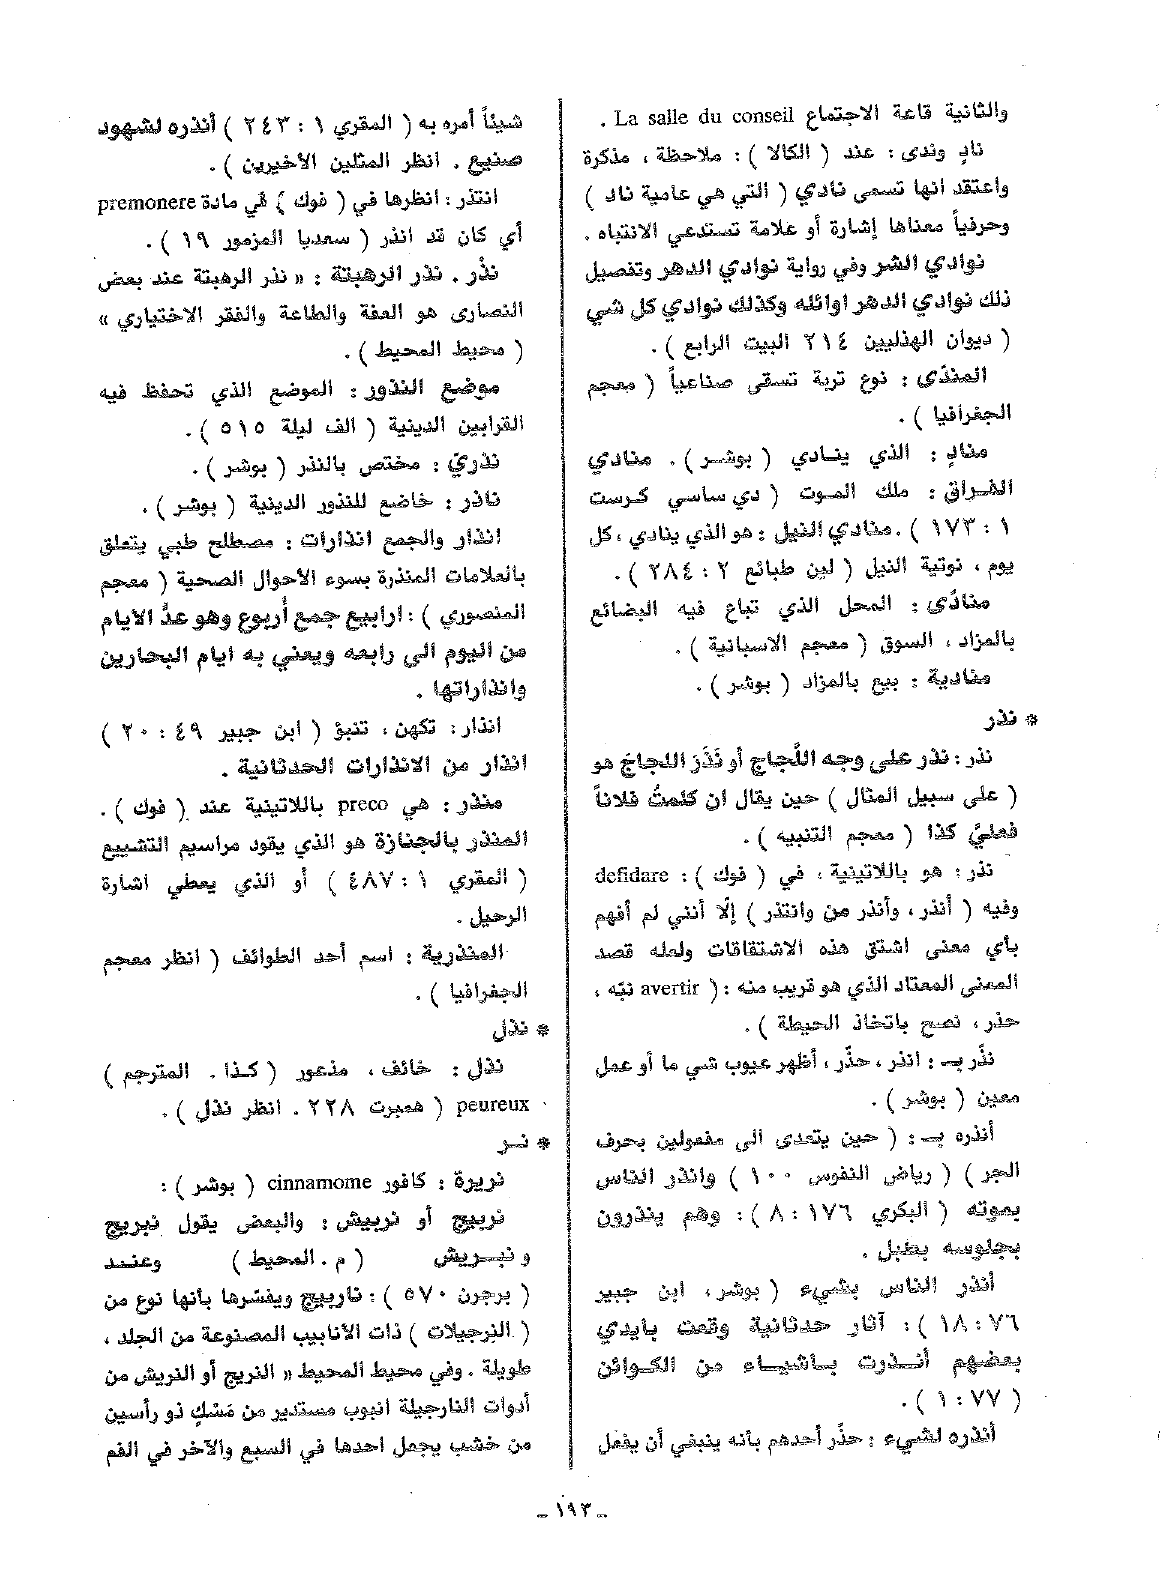 والثانية قاعة الاجتماع La salle du conseil .
نادٍ وندى : عند ( الكالا ) : ملاحظة ، مذكرة
واعتقد انها تسمى نادي ( التي هي عامية ناد )
وحرفياً معناها إشارة أو علامة تستدعي الانتباه .
نوادي الشر وفي رواية نوادي الدهر وتفصيل
ذلك نوادي الدهر اوائله وكذلك نوادي كل شي
( ديوان الهذليين ٢١٤ البيت الرابع ) .
المندّى : نوع تربة تسقى صناعياً ( معجم
الجغرافيا ) .
منادٍ : الذي ينادي ( بوشر ) . منادي
الفراق : ملك الموت ( دي ساسي كرست
١ : ١٧٣ ) . منادي النيل : هو الذي ينادي ، كل
يوم ، نوتية النيل ( لين طبائع ٢ : ٢٨٤ ) .
منادًى : المحل الذي تباع فيه البضائع
بالمزاد ، السوق ( معجم الاسبانية ) .
منادية : بيع بالمزاد ( بوشر ) .
* نذر
نذر : نذر على وجه اللَّجاج أو نَذَرَ اللجاجَ هو
( على سبيل المثال ) حين يقال ان كلمتُ فلاناً
فعليَّ كذا ( معجم التنبيه ) .
نذر : هو باللاتينية ، في ( فوك ) : defidare
وفيه ( أنذر ، وأنذر من وانتذر ) إلّا أنني لم أفهم
بأي معنى اشتق هذه الاشتقاقات ولعله قصد
المعنى المعتاد الذي هو قريب منه : ( avertir نبّه ،
حذر ، نصح باتخاذ الحيطة ) .
نذَّر بـ : انذر ، حذّر ، أظهر عيوب شي ما أو عمل
معين ( بوشر ) .
أنذره بـ : ( حين يتعدى الى مفعولين بحرف
الجر ) ( رياض النفوس ١٠٠ ) وانذر الناس
بموته ( البكري ١٧٦ : ٨ ) : وهم ينذرون
بجلوسه بطبل .
أنذر الناس بشيء ( بوشر ، ابن جبير
٧٦ : ١٨ ) : آثار حدثانية وقعت بأيدي
بعضهم أنذرت بأشياء من الكوائن
( ٧٧ : ١ ) .
أنذره لشيء : حذّر أحدهم بأنه ينبغي أن يفعل
شيئاً أمره به ( المقري ١ : ٢٤٣ ) أنذره لشهود
صنيع . انظر المثلين الأخيرين ) .
انتذر : انظرها في ( فوك ) في مادة premonere
أي كان قد انذر ( سعديا المزمور ١٩ ) .
نذْر . نذر الرهبنة : « نذر الرهبنة عند بعض
النصارى هو العفة والطاعة والفقر الاختياري »
( محيط المحيط ) .
موضع النذور : الموضع الذي تحفظ فيه
القرابين الدينية ( الف ليلة ٥١٥ ) .
نذريّ : مختص بالنذر ( بوشر ) .
ناذر : خاضع للنذور الدينية ( بوشر ) .
انذار والجمع انذارات : مصطلح طبي يتعلق
بالعلامات المنذرة بسوء الأحوال الصحية ( معجم
المنصوري ) : ارابيع جمع أُربوع وهو عدُّ الأيام
من اليوم الى رابعه ويعني به ايام البحارين
وانذاراتها .
انذار : تكهن ، تنبؤ ( ابن جبير ٤٩ : ٢٠ )
انذار من الانذارات الحدثانية .
منذر : هي preco باللاتينية عند ( فوك ) .
المنذر بالجنازة هو الذي يقود مراسيم التشييع
( المقري ١ : ٤٨٧ ) أو الذي يعطي اشارة
الرحيل .
المنذرية : اسم أحد الطوائف ( انظر معجم
الجغرافيا ) .
* نذل
نذل : خائف ، مذعور ( كذا . المترجم )
peureux ( همبرت ٢٢٨ . انظر نذل ) .
* نر
نريرة : كافور cinnamome ( بوشر ) :
نربيج أو نربيش : والبعض يقول نبريج
ونبريش ( م . المحيط ) وعند
( برجرن ٥٧٠ ) : ناربيج ويفسّرها بأنها نوع من
( النرجيلات ) ذات الأنابيب المصنوعة من الجلد ،
طويلة . وفي محيط المحيط « النربج أو النربش من
أدوات النارجيلة انبوب مستدير من مَسْكٍ ذو رأسين
من خشب يجعل احدها في السبع والآخر في الفم
ـ ١٩٣ ـ